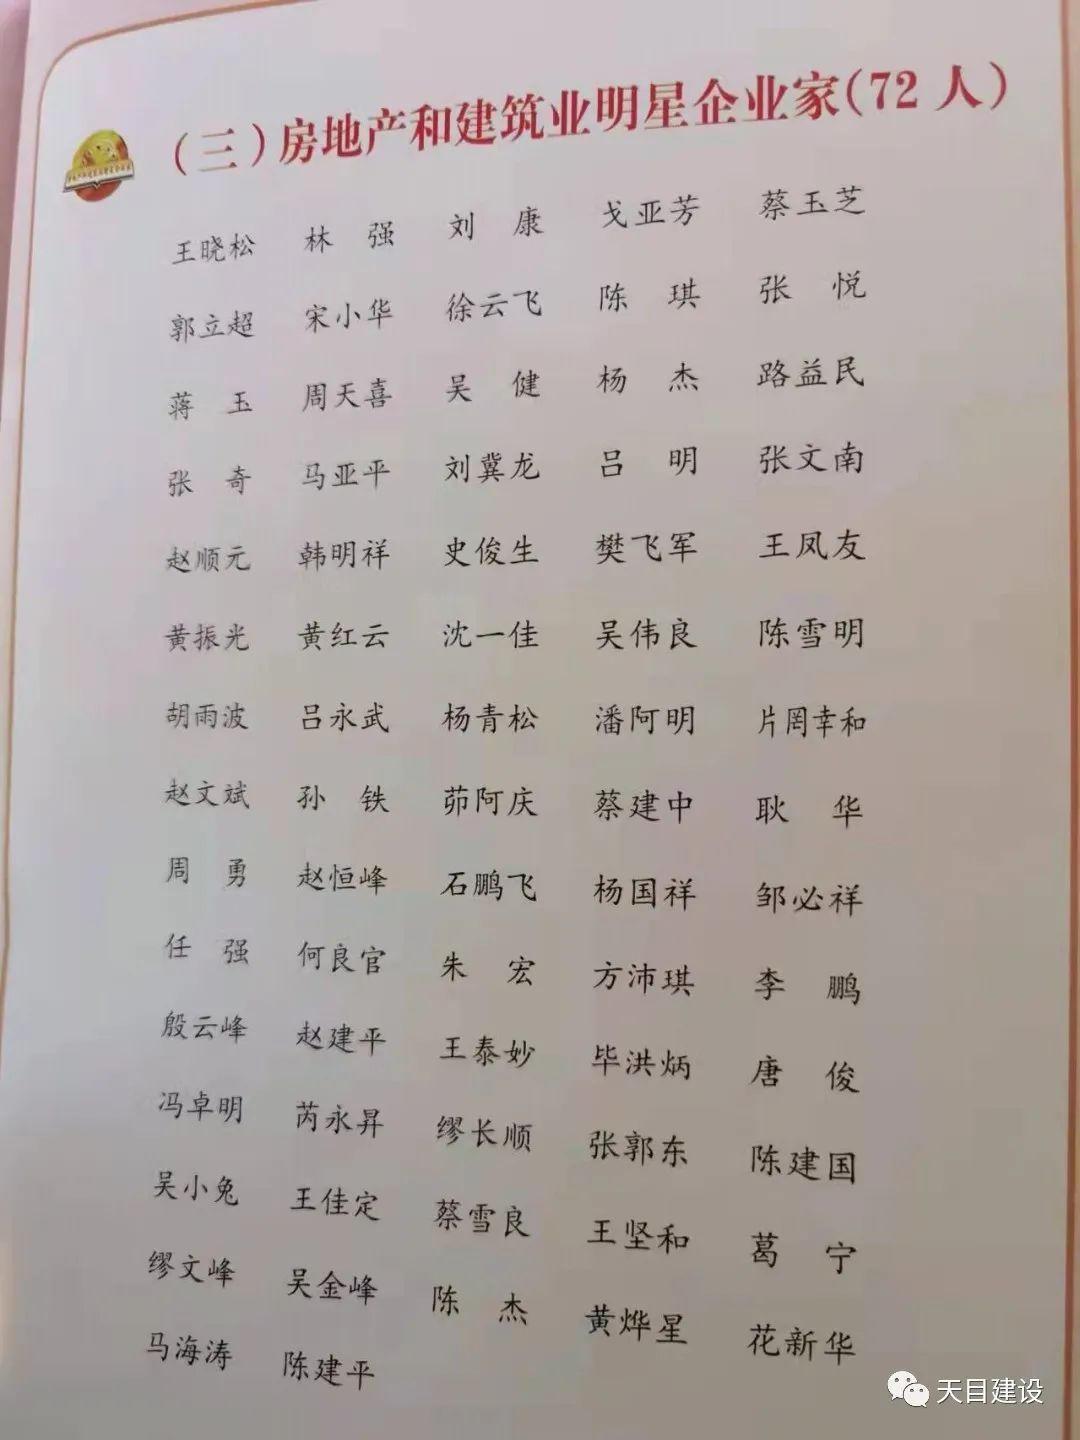 （三）房地产和建筑业明星企业家（72人）
王晓松 林强 刘康 戈亚芳 蔡玉芝
郭立超 宋小华 徐云飞 陈琪 张悦
蒋玉 周天喜 吴健 杨杰 路益民
张奇 马亚平 刘冀龙 吕明 张文南
赵顺元 韩明祥 史俊生 樊飞军 王凤友
黄振光 黄红云 沈一佳 吴伟良 陈雪明
胡雨波 吕永武 杨青松 潘阿明 片冈幸和
赵文斌 孙铁 茆阿庆 蔡建中 耿华
周勇 赵恒峰 石鹏飞 杨国祥 邹必祥
任强 何良官 朱宏 方沛琪 李鹏
殷云峰 赵建平 王泰妙 毕洪炳 唐俊
冯卓明 芮永昇 缪长顺 张郭东 陈建国
吴小兔 王佳定 蔡雪良 王坚和 葛宁
缪文峰 吴金峰 陈杰 黄烨星 花新华
马海涛 陈建平
天目建设